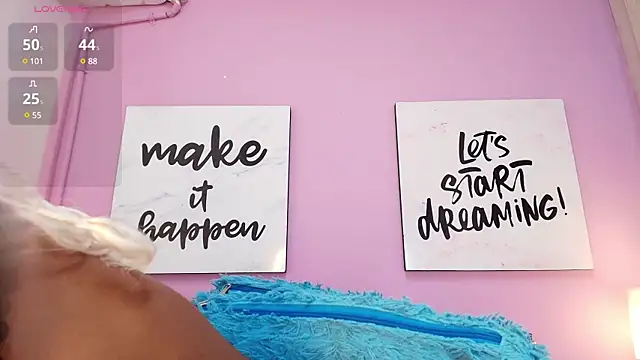 LOVENSE
50s
101
44s
88
25s
55
make
it
happen
Let's
START
dREAMiNG!